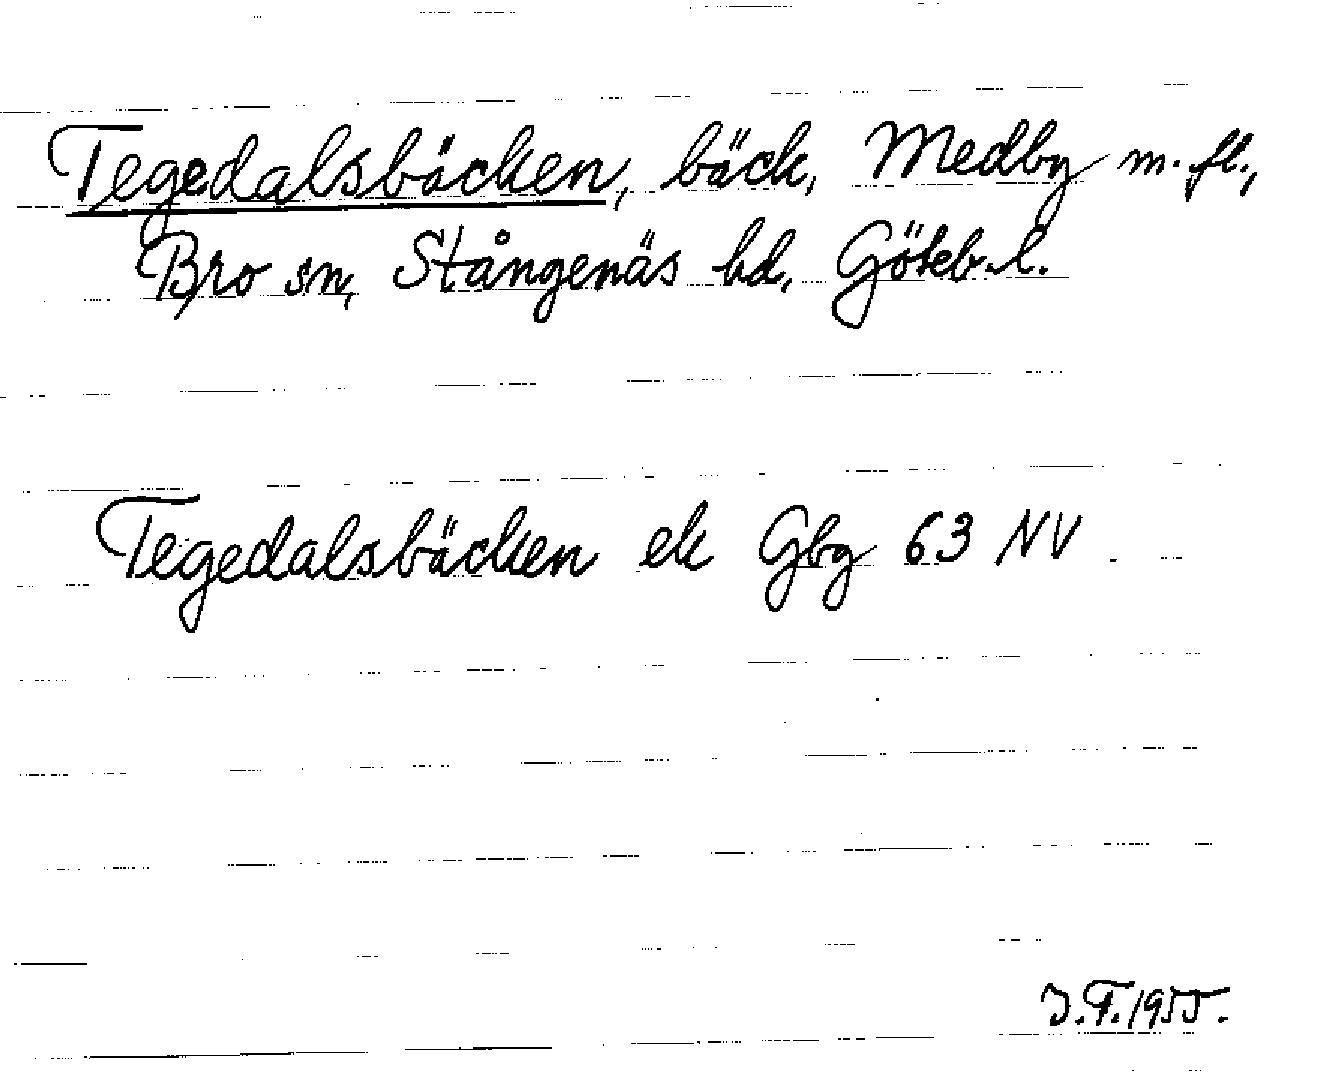 Tegedalsbäcken, bäck, Medby m. fl.,
Bro sn, Stångenäs hd, Göteb. l.
Tegedalsbäcken ek Gbg 63 NV
I.F. 1955.